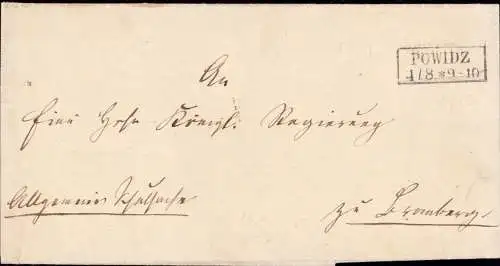 POWIDZ
4/8 *9-10
An
Eine Hohe Königl: Regierung
Allgemeine Schulsache
zu Bromberg